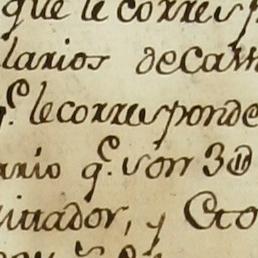 que le corresp
larios decam
q.e le corresponde
ario q.e son 3@
itador, y Oto